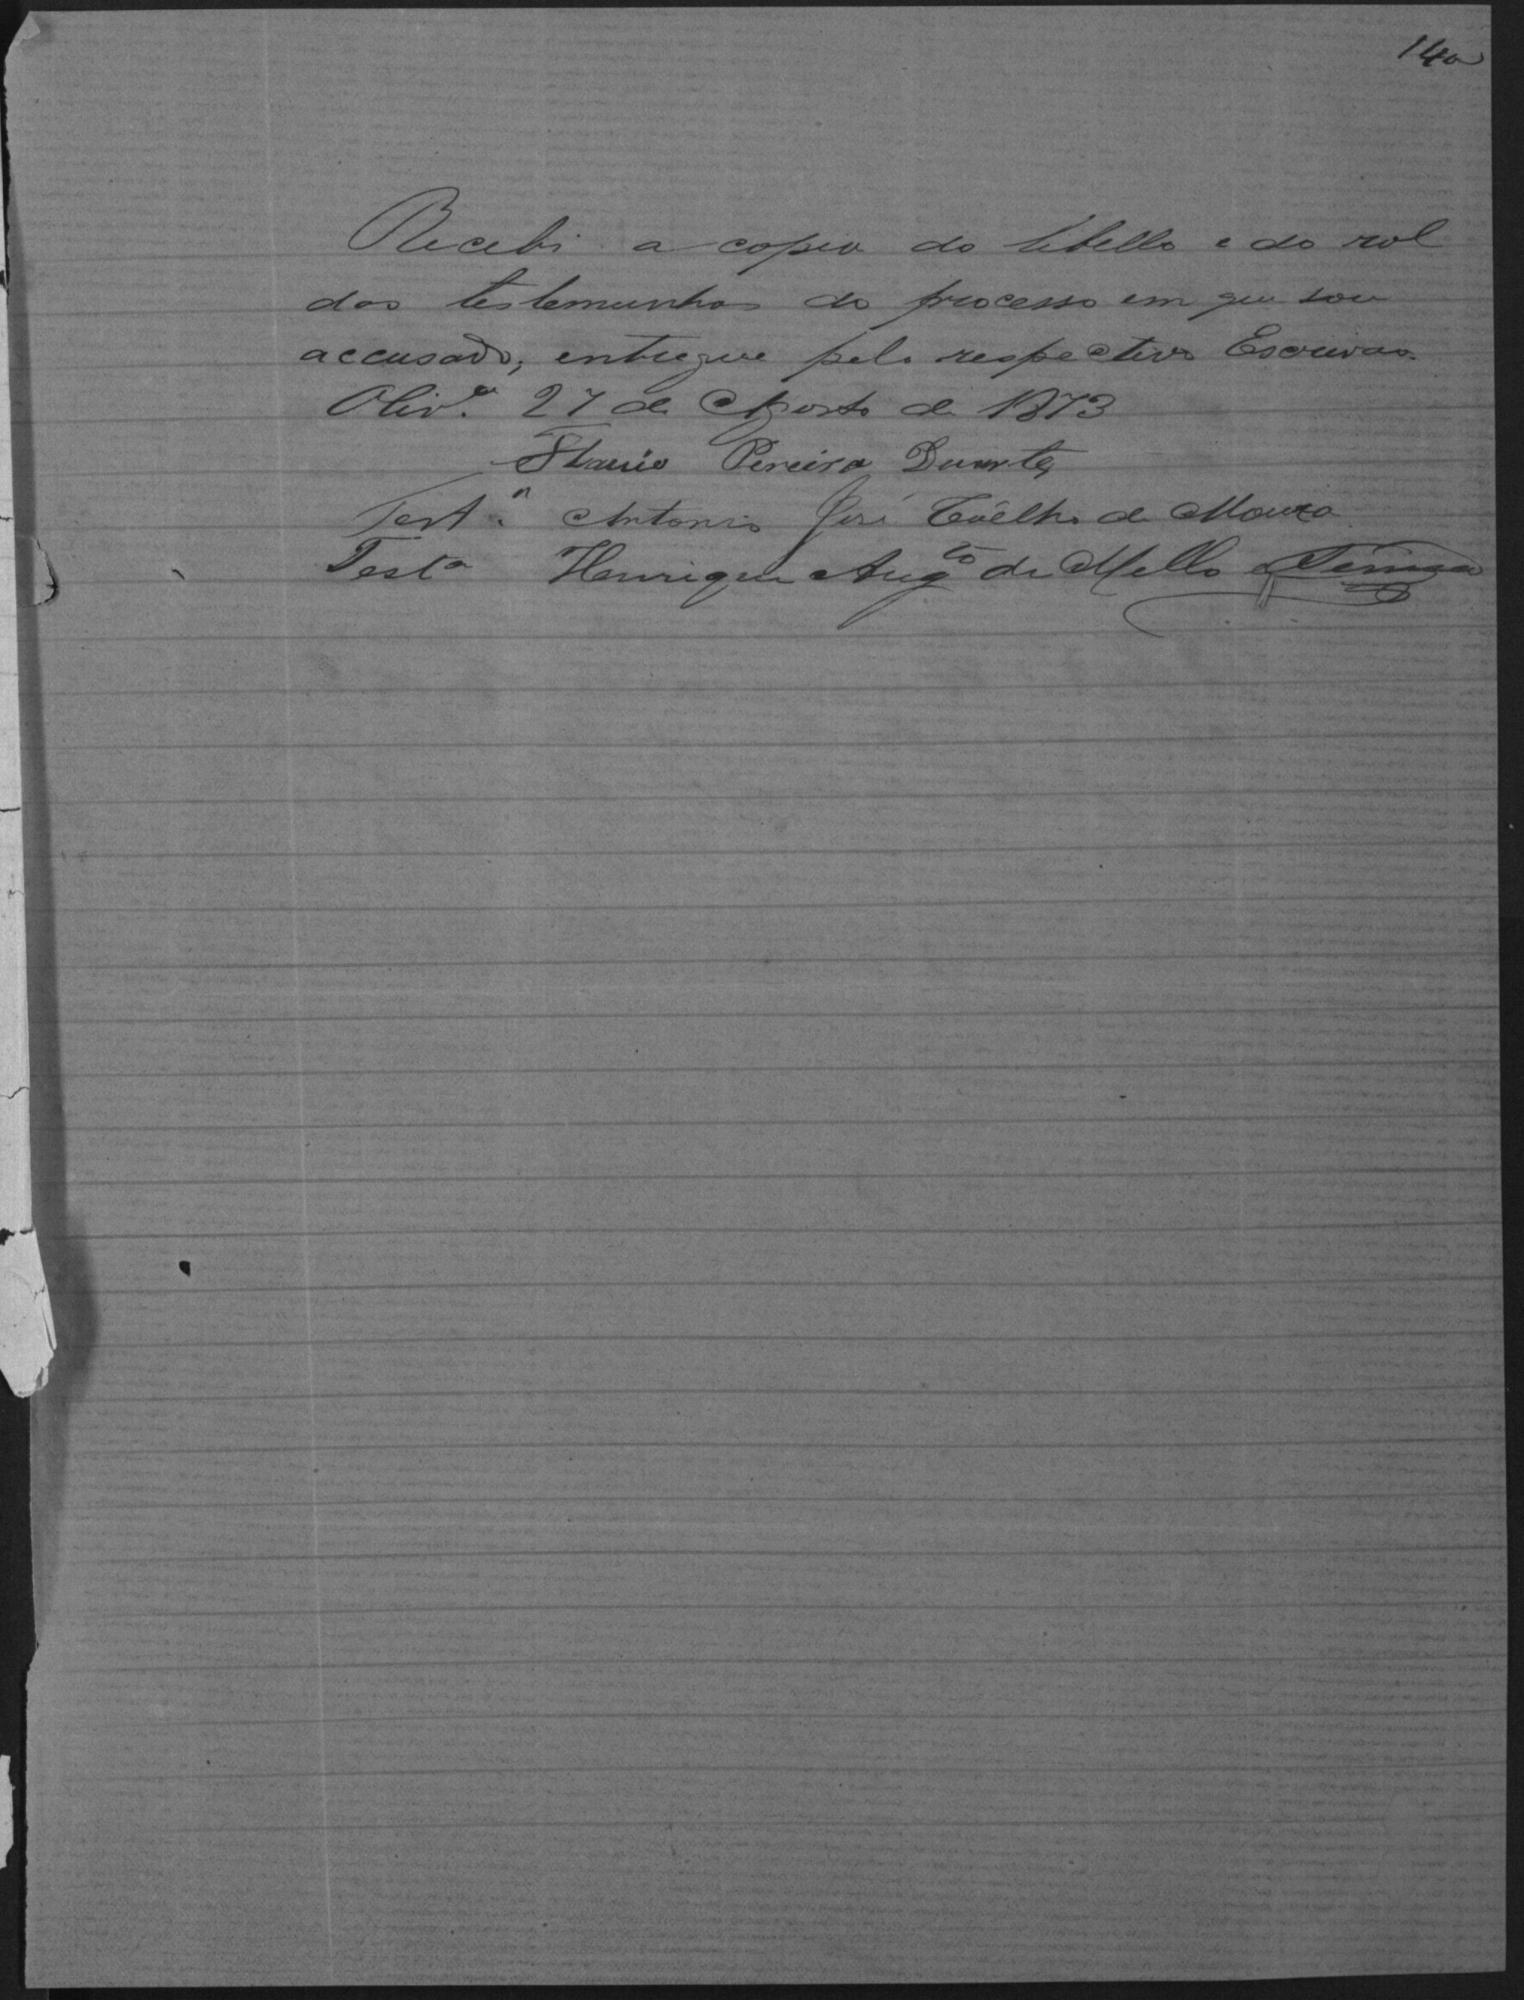 140
Recebi a copia do libello e do rol
das testemunhas do processo em que sou
accusado, entregue pelo respectivo Escrivão.
Oliv.ª 27 de Agosto de 1873
Flavio Pereira Duarte
Test.ª Antonio José Coêlho de Moura
Testª Henrique Augto de Mello